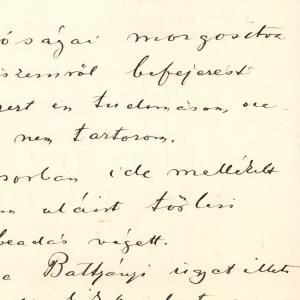 óságai
szemről befejezést
ezert én tudomásom sze-
nem tartozom.
sorban ide mellékelt
aláirt törlési
beadás végett.
a Batthányi ügyet illető